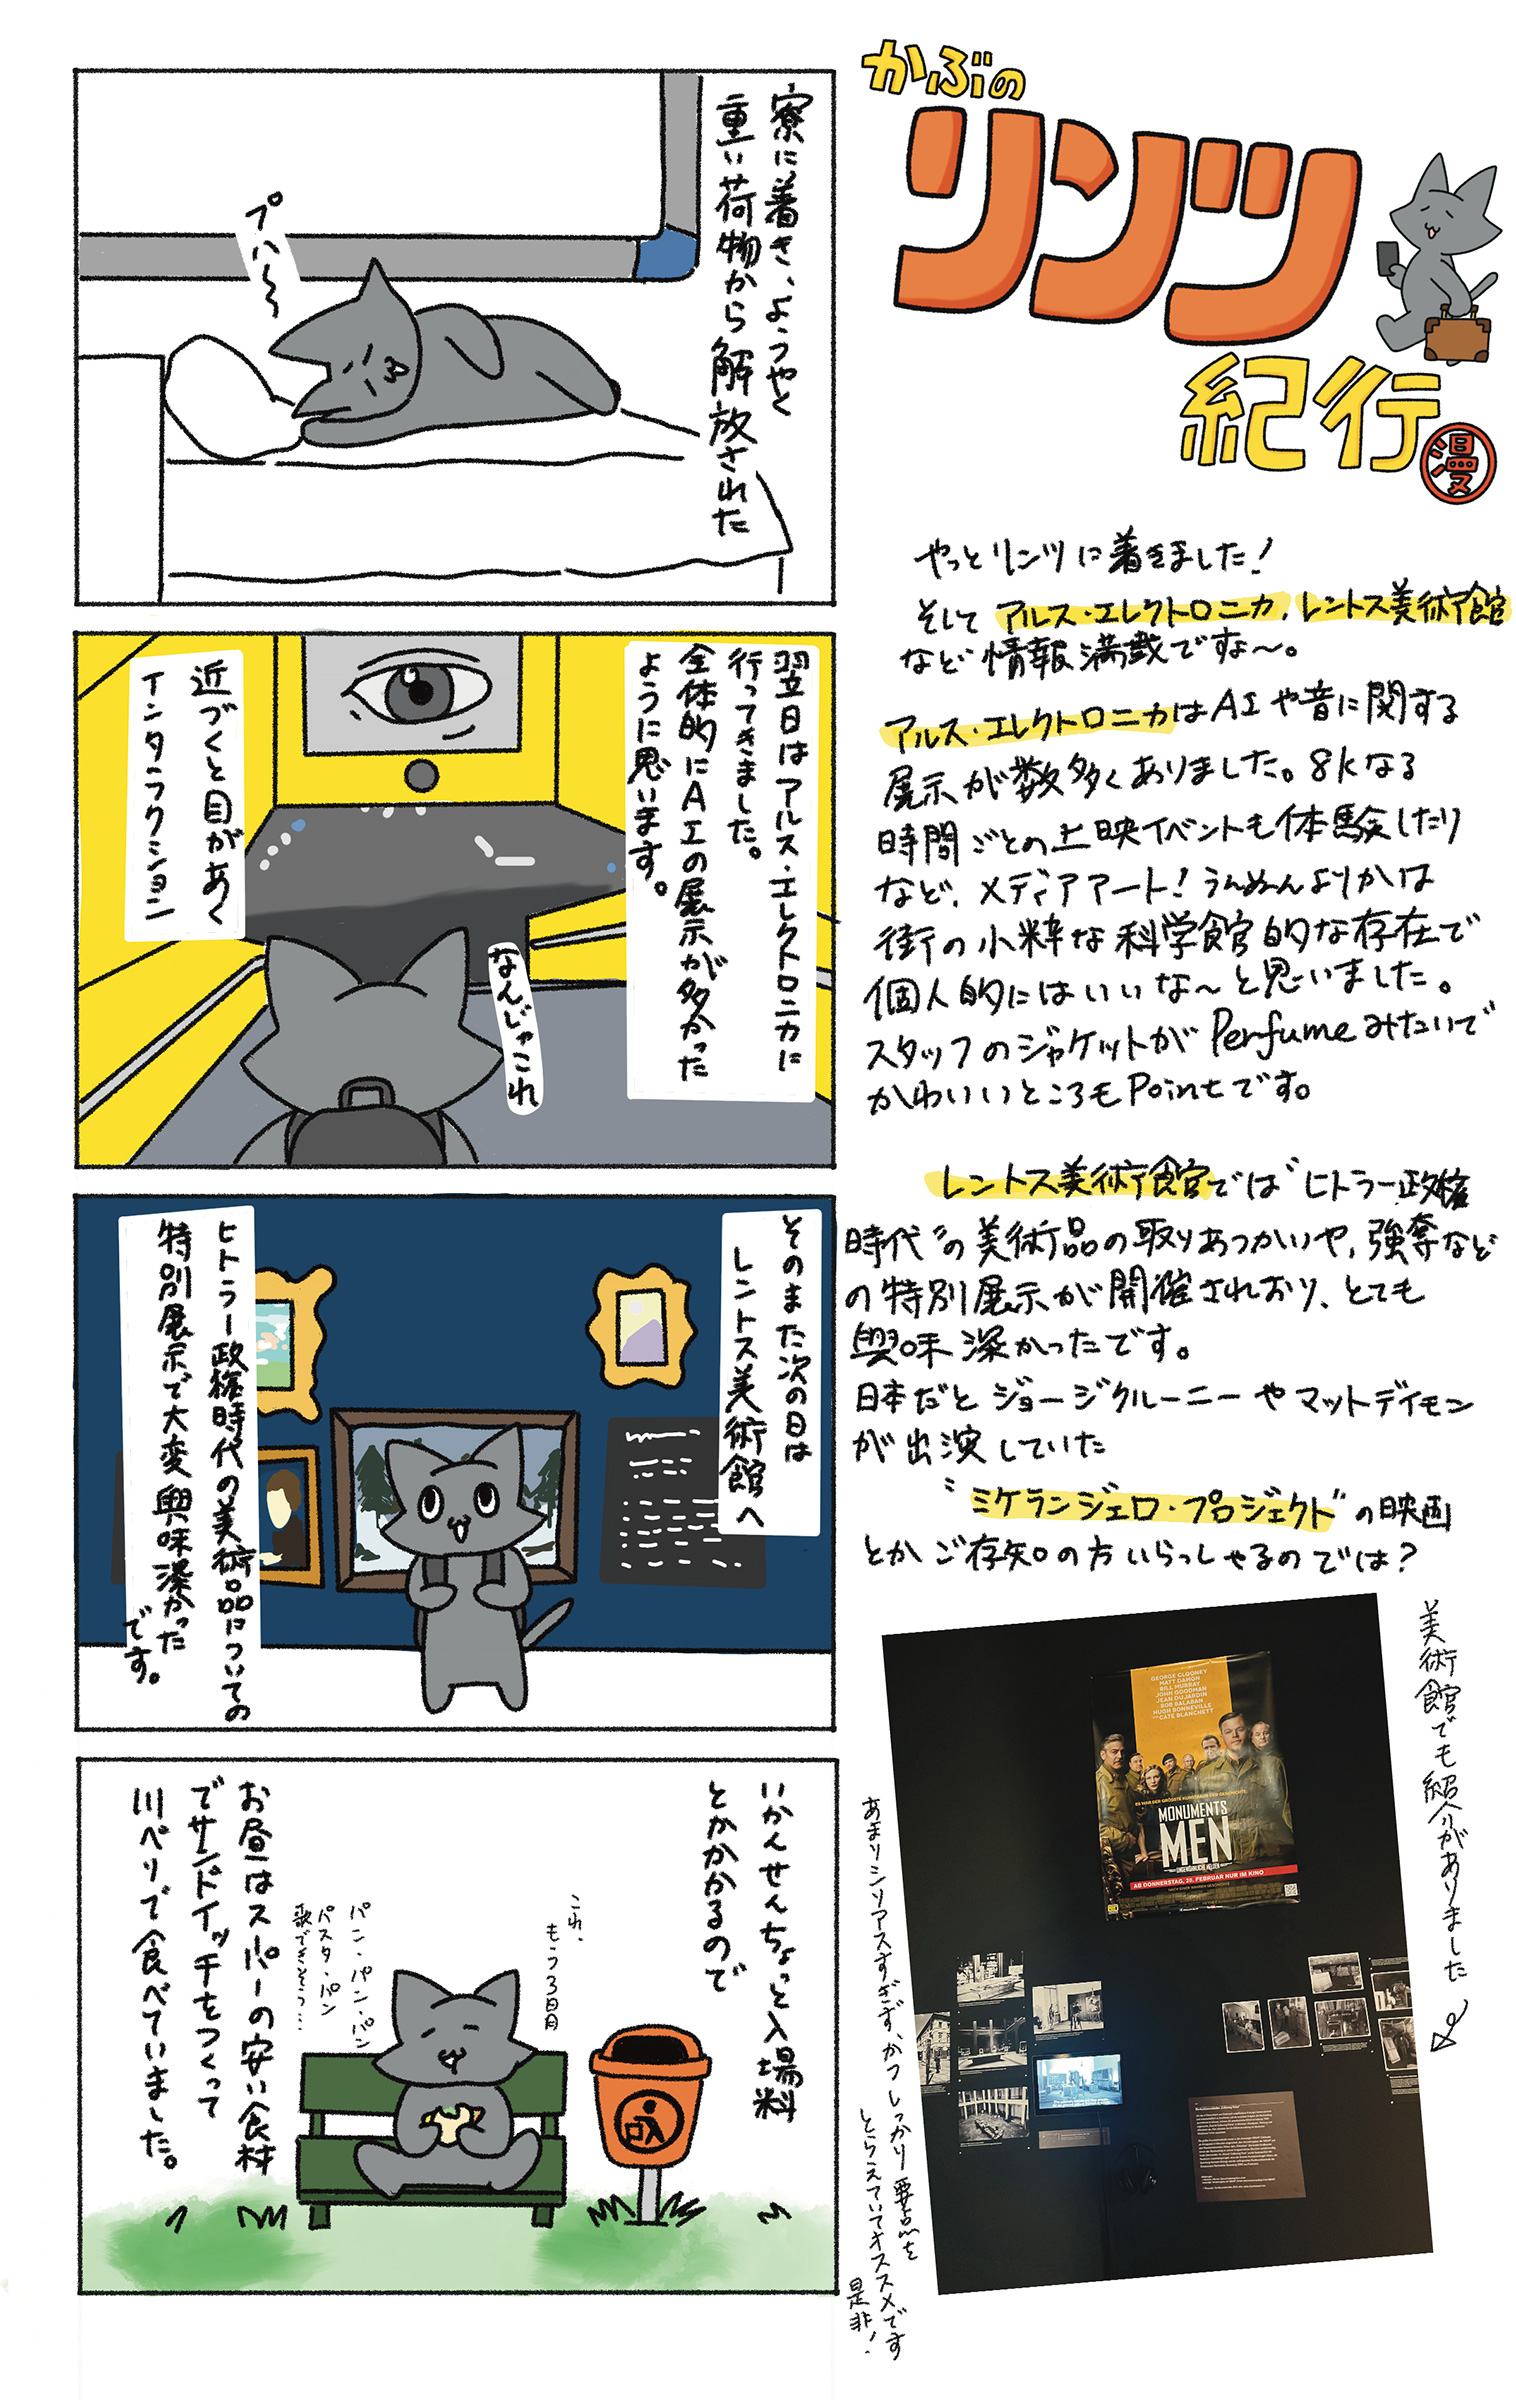 かぶの
リンツ
紀行
漫
寮に着き、ようやく
重い荷物から解放された
プハ〜
翌日はアルス・エレクトロニカに
行ってきました。
全体的にAIの展示が多かった
ように思います。
近づくと目があく
インタラクション
なんじゃこれ
そのまた次の日は
レントス美術館へ
ヒトラー政権時代の美術品についての
特別展示で大変興味深かった
です。
いかんせんちょっと入場料
とかかかるので
お昼はスーパーの安い食材
でサンドイッチをつくって
川べりで食べていました。
これ、
もう3日目
パン・パン・パン
パスタ・パン
歌できそう…
やっとリンツに着きました!
そして アルス・エレクトロニカ, レントス美術館
など情報満載ですな〜。
アルス・エレクトロニカはAIや音に関する
展示が数多くありました。8kなる
時間ごとの上映イベントも体験したり
など、メディアアート!うんぬんよりかは
街の小粋な科学館的な存在で
個人的にはいいな〜と思いました。
スタッフのジャケットがPerfumeみたいで
かわいいところもPointです。
レントス美術館では"ヒトラー政権
時代"の美術品の取りあつかいや, 強奪など
の特別展示が開催されおり、とても
興味深かったです。
日本だと ジョージクルーニーやマットデイモン
が出演していた
"ミケランジェロ・プロジェクト"の映画
とかご存知の方いらっしゃるのでは?
美術館でも紹介がありました
GEORGE CLOONEY
MATT DAMON
BILL MURRAY
JOHN GOODMAN
JEAN DUJARDIN
BOB BALABAN
HUGH BONNEVILLE
CATE BLANCHETT
ES WAR DER GRÖSSTE KUNSTRAUB DER GESCHICHTE.
MONUMENTS
MEN
UNGEWÖHNLICHE HELDEN
AB DONNERSTAG, 20. FEBRUAR NUR IM KINO
あまりシリアスすぎず、かつしっかり要点を
とらえていてオススメです
是非!